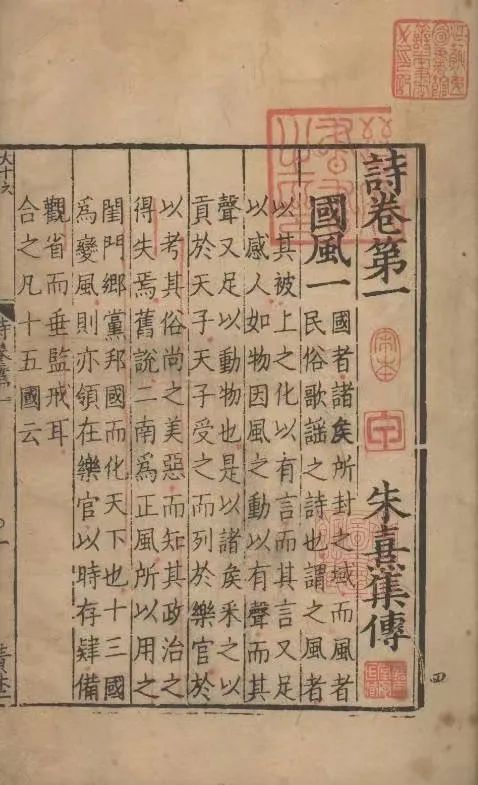 詩卷第一 宋本 朱熹集傳
國風一 國者諸矦所封之域而風者
民俗歌謠之詩也謂之風者
以其被上之化以有言而其言又足
以感人如物因風之動以有聲而其
聲又足以動物也是以諸矦采之以
貢於天子天子受之而列於樂官於
以考其俗尚之美惡而知其政治之
得失焉舊說二南爲正風所以用之
閨門鄉黨邦國而化天下也十三國
爲變風則亦領在樂官以時存肄備
觀省而垂監戒耳
合之凡十五國云